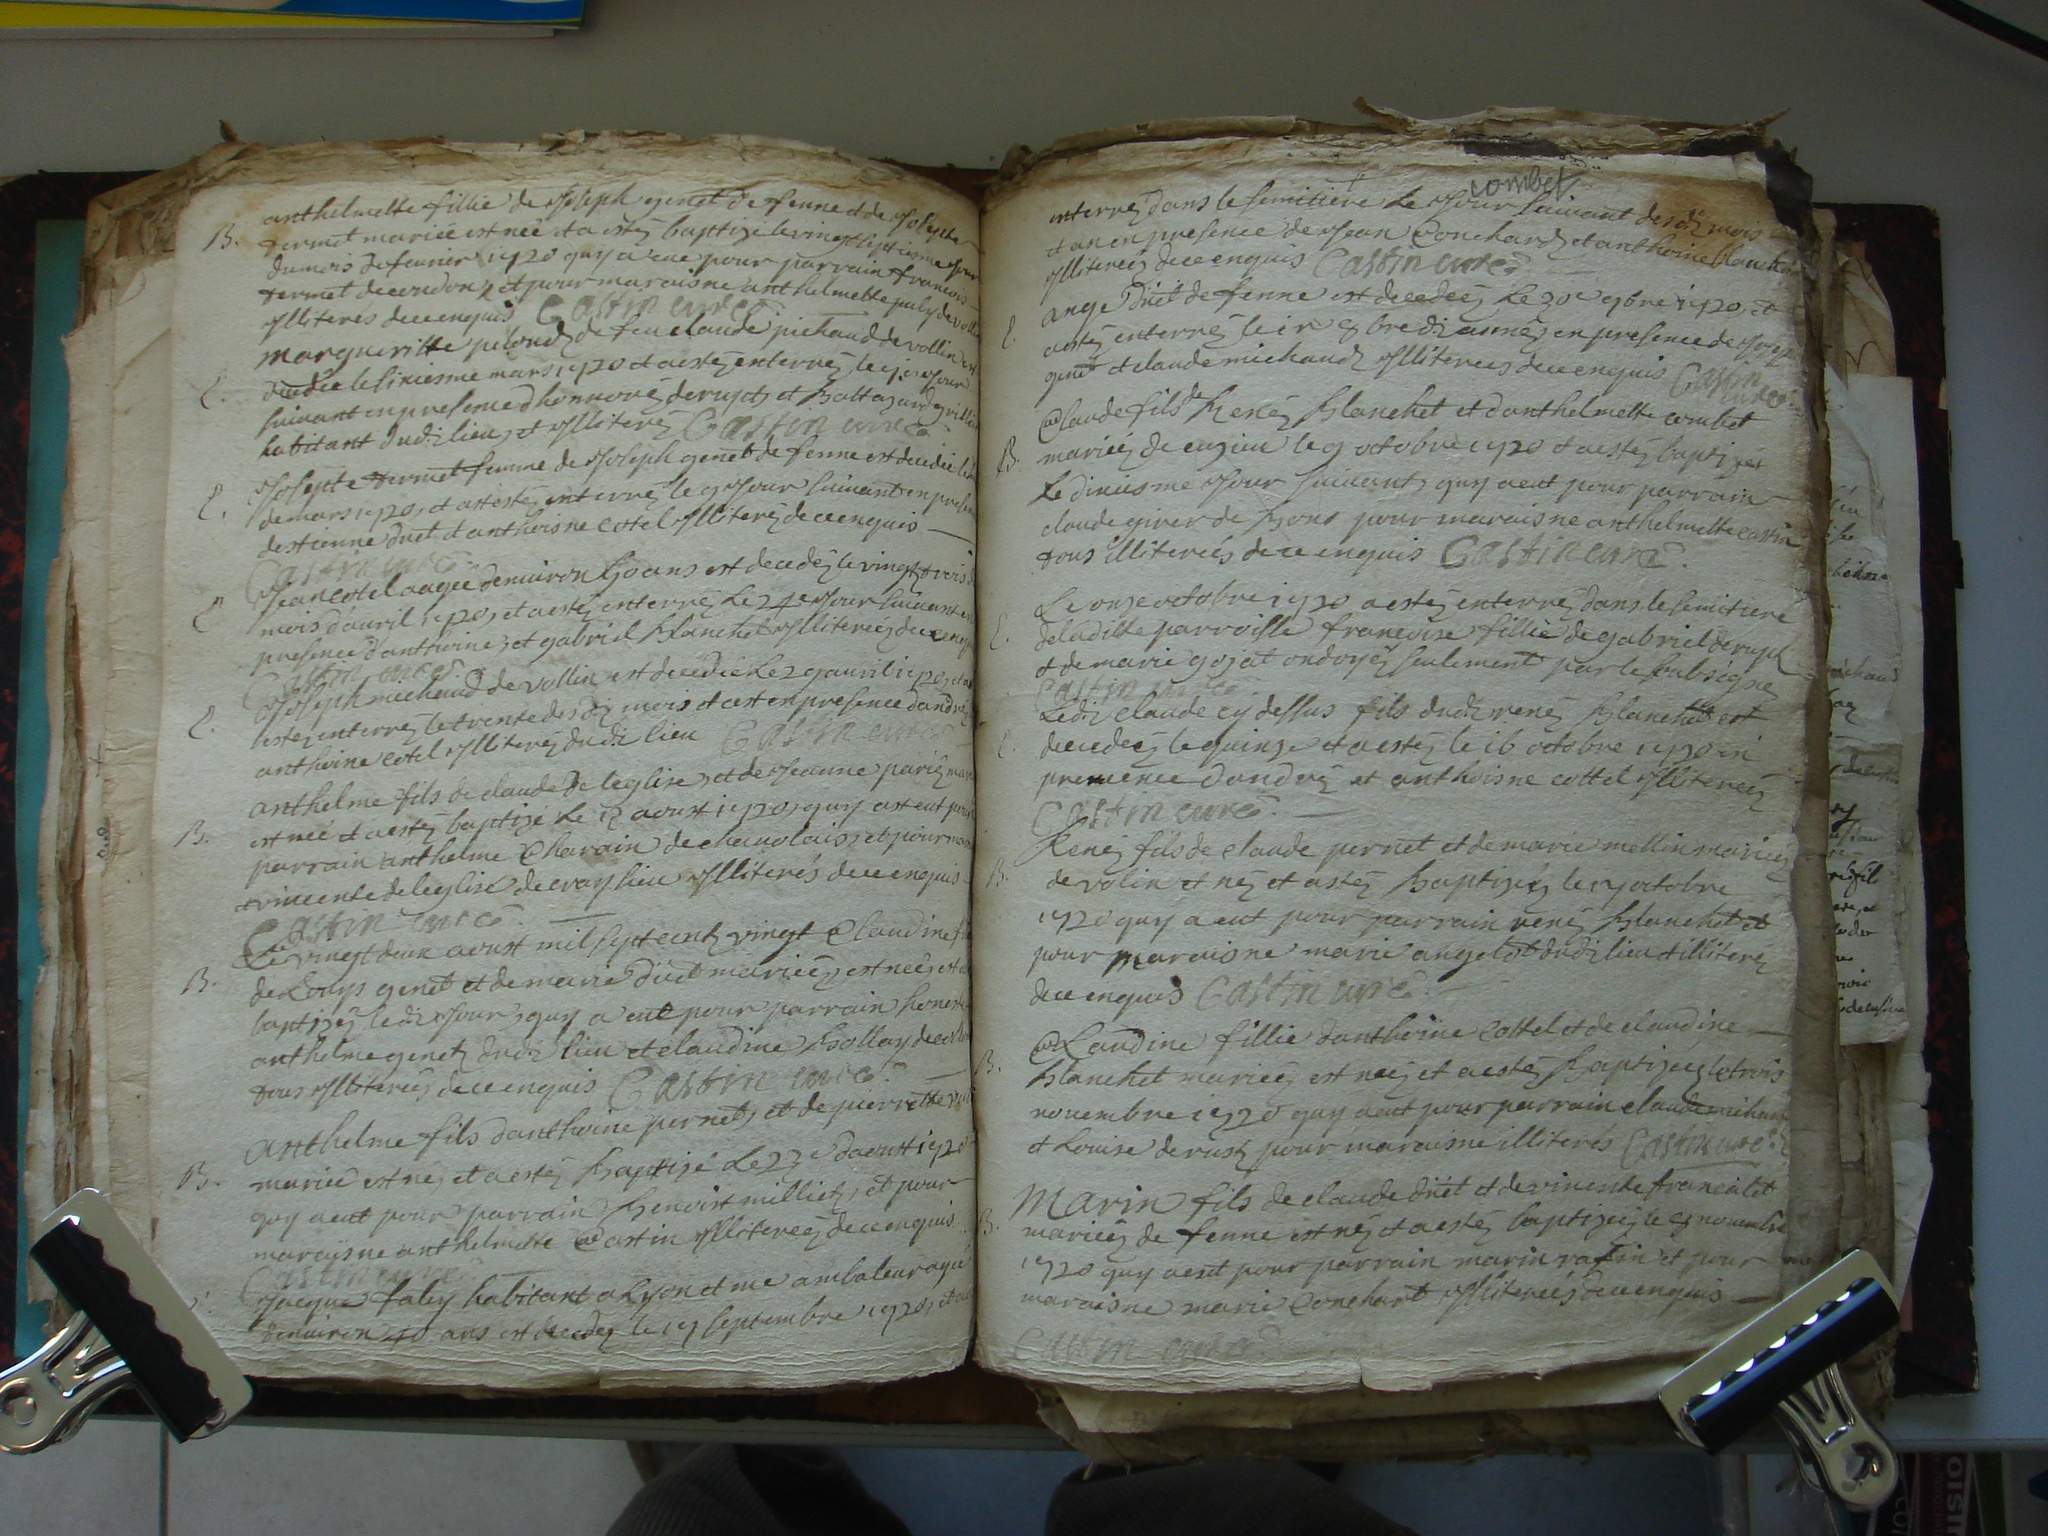 anthelmette fillie de Joseph genet de fenne et de Josepte
B. termet mariée est née et a estéz baptize le vingt septiesme Jour
du mois de feurier 1720 quy a eue pour parrain francois
termet de condonz et pour maraisne anthelmette puly de vollin
Jlliteres de ce enquis Castin curé
Margueritte pelondz de feu claude pichaud de vollin est
E. decedée le siziesme mars 1720 et a estéz enterréz le Jour
suiuant en presence d'honnoréz derupt et Baltazard grillie
habitant dudi lieu et Jlliteréz Castin curé
Josepte termet femme de Joseph genet de fenne est decedée le
E. de mars 1720, et at estéz enterréz le 9 Jour suiuant en presence
d'estienne duet et anthoisne cotel Jlliteréz de ce enquis
Castin curé
E. Jean cotel aagée d'enuiron 60 ans est decedéz le vingt trois du
mois d'auril 1720, et a estéz enterréz le 24e Jour suiuant en
presence d'anthoine, et gabriel blanchet Jlliteréz de ce enquis
Castin curé
Joseph michaud de vollin est decedée le 29 auril 1720, et a
E. estez enterréz le trente desdz mois et est en presence d'andréz
anthoine cotel Jlliteréz dudz lieu Castin curé
anthelme fils de claude de leglise, et de Jeanne pariz mariez
B. est neé et a estéz baptizé le 12 aoust 1720, quy ast eut pour
parrain anthelme Charain de chanolais, et pour maraisne
vincente de leglise de cray lieu Jlliterés de ce enquis
Castin curé
Le vingt deux aoust mil sept centz vingt Claudine fillie
B. de Louys genet et de marie duet mariéez, est neéz et a esté
baptizéz ledz Jour, quy a eut pour parrain honeste
anthelme genetz dudz lieu et claudine bollay de
tous Jlliteréz de ce enquis Castin curé
anthelme fils d'anthoine pernetz, et de pierrette
B. mariée est né, et a estéz baptizé le 23e d'aoust 1720
quy a eut pour parrain benoist millietz, et pour
maraisne anthelmette Castin Jlliteréez de ce enquis
Castin curé
E. Jacque faley habitant a Lyon et me ambaleur agée
d'enuiron 40 ans est decedéz le 17 septembre 1720, et a
combet
enterréz dans le semitiere le Jour suiuant desdz mois
et an en presence de Jean Conchardz et anthoine blanchet
Jlliteréz de ce enquis Castin curé
E. ange duet de fenne est decedéez le 30e 7bre 1720, et
a estéz enterréz le 1r 8bre dz année, en presence de Joseph
genet et claude michaudz Jlliterees de ce enquis Castin
curé
Claude fils de Renéz blanchet et d'anthelmette combet
B. mariéez de cuzieu le 9 octobre 1720 et a estéz baptizés
le diziesme Jour suiuant, quy a eut pour parrain
claude giver de bons pour maraisne anthelmette castin
tous illiterés de ce enquis Castin curé
Le onze octobre 1720 a estéz enterréz dans le semitiere
E. de laditte parroisse francoise fillie de gabriel derupt
et de marie gojat ondoyéz seulement par le subsignez
Castin curé
Ledz claude cy dessus fils dudz renéz blanchet est
E. decedéez le quinze et a estéz le 16 octobre 1720 in
premence d'andréz et anthoisne cottel Jlliteréez
Castin curé
Renéz fils de claude pernet et de marie mellin mariéez
B. de volin et néz et a estéz baptizéz le 17 octobre
1720 quy a eut pour parrain renéz blanchet et
pour maraisne marie angelot dudz lieu et illiteréz
de ce enquis Castin curé
Claudine fillie d'anthoine Cottel et de claudine
B. blanchet mariéez est neéz et a estéz baptizéez le trois
nouembre 1720 quy a eut pour parrain claude michaud
et Louise derustz pour maraisne illiterés Castin curé
Marin fils de claude duet et de vincente francalet
B. mariéez de fenne est néz et a estéz baptizéz le 9 nouembre
1720 quy a eut pour parrain marin raffin et pour
maraisne marie Conchart Jlliteréez de ce enquis
Castin curé